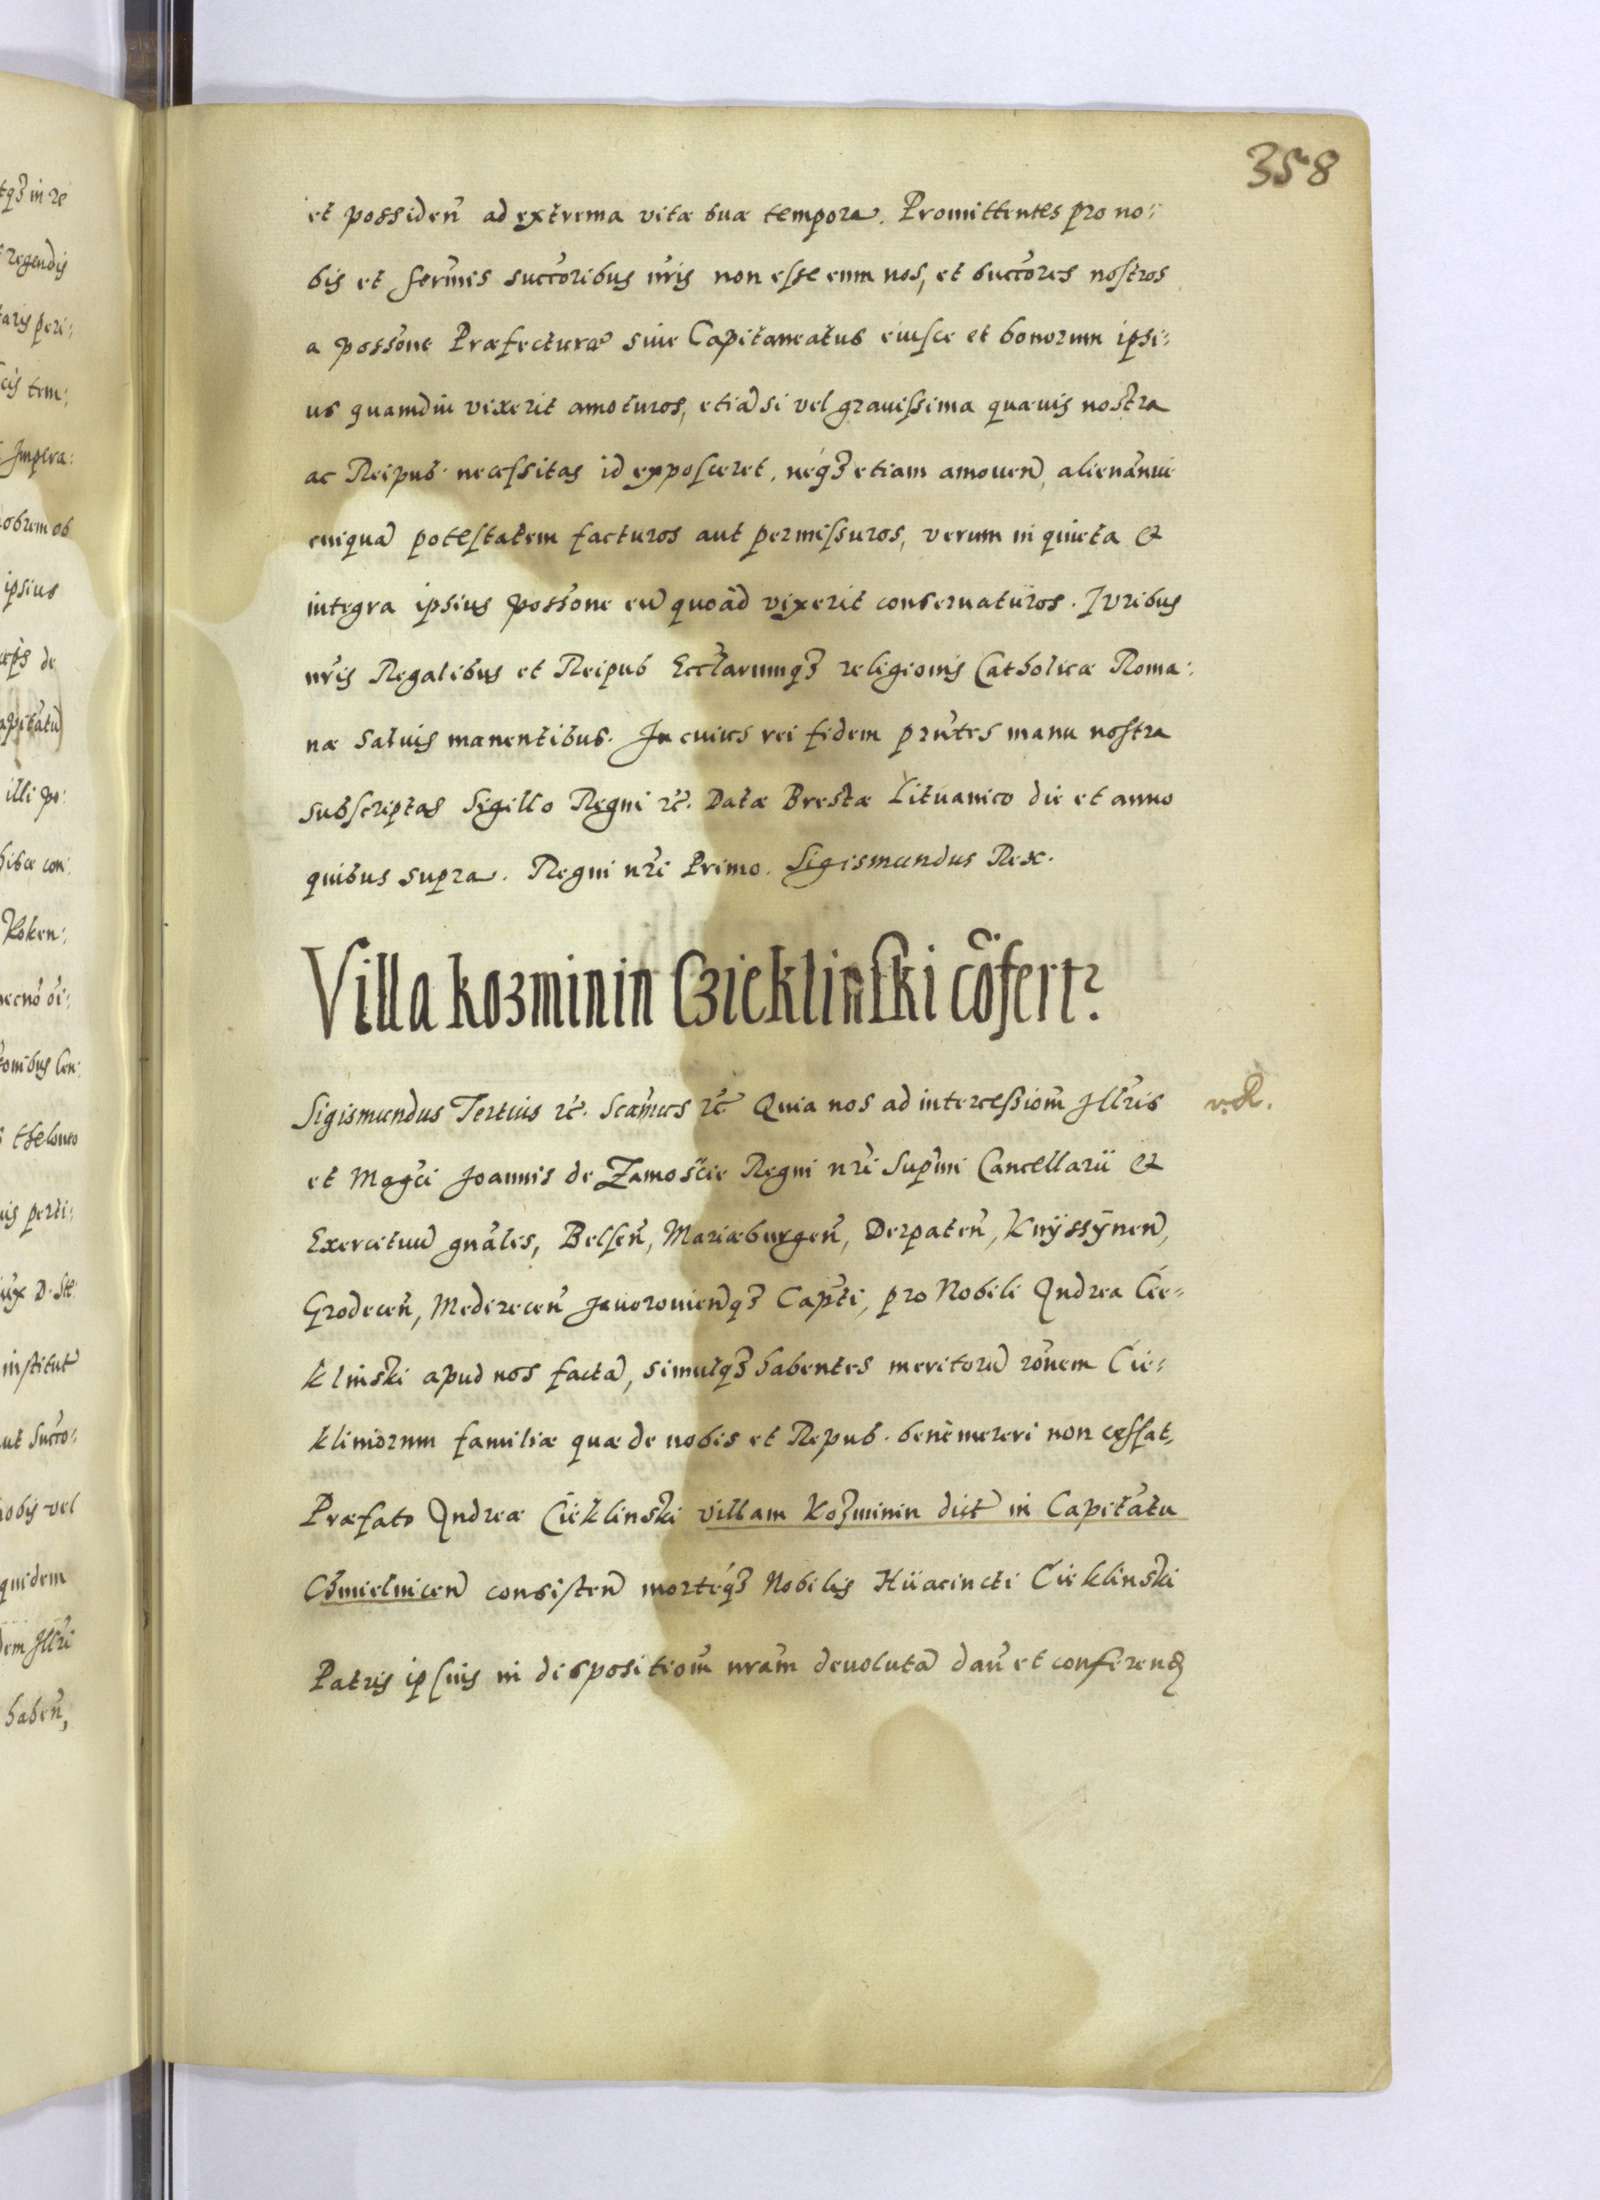 358
et possideñ ad extrema vitæ suæ tempora. Promittentes pro no:
bis et serm̃is succoribus nr̃is non esse eum nos, et succores nostros
a possone Præfecturæ siue Capitaneatus eiusce et bonorum ipsi:
us quamdiu vixerit amoturos, etiã si vel grauissima quæuis nostra
ac Reipub. necessitas id exposceret, neqꝫ etiam amouen̄, alienan̄ue
cuiquã potestatem facturos aut permissuros, verum in quieta &
integra ipsius possone eũ quoad vixerit conseruaturos. Iuribus
nr̃is Regalibus et Reipub Eccl̃arumqꝫ religionis Catholicæ Roma:
næ saluis manentibus. In cuius rei fidem prñtes manu nostra
subscriptas Sigillo Regni rc̃. Datæ Brestæ Lituanico die et anno
quibus supra. Regni nr̃i Primo. Sigismundus Rex.
Villa kozminin Czieklinski cõfertr
Sigismundus Tertius rc̃. Scam̃us rc̃ Quia nos ad intercessiom̃ Illr̃is
et Mag̃ci Joannis de Zamoscie Regni nr̃i Supr̃mi Cancellarii &
Exercituũ gnãles, Belseñ, Mariæburgeñ, Derpateñ, Knÿssÿneñ,
Grodeceñ, Medereceñ Jauorouien̄qꝫ Cap̃ti, pro Nobili Andrea Cie=
klinski apud nos factã, simulqꝫ habentes meritorũ rõnem Cie:
kliniorum familiæ quæ de nobis et Repub. benemereri non cessat,
Præfato Andreæ Cieklinski villam Kozminin dict̃ in Capitãtu
Chmielnicen̄ consisten̄ morteqꝫ Nobilis Hiiacincti Cieklinski
Patris ipsius in dispositiom̃ nrãm deuolutã dañ et conferend